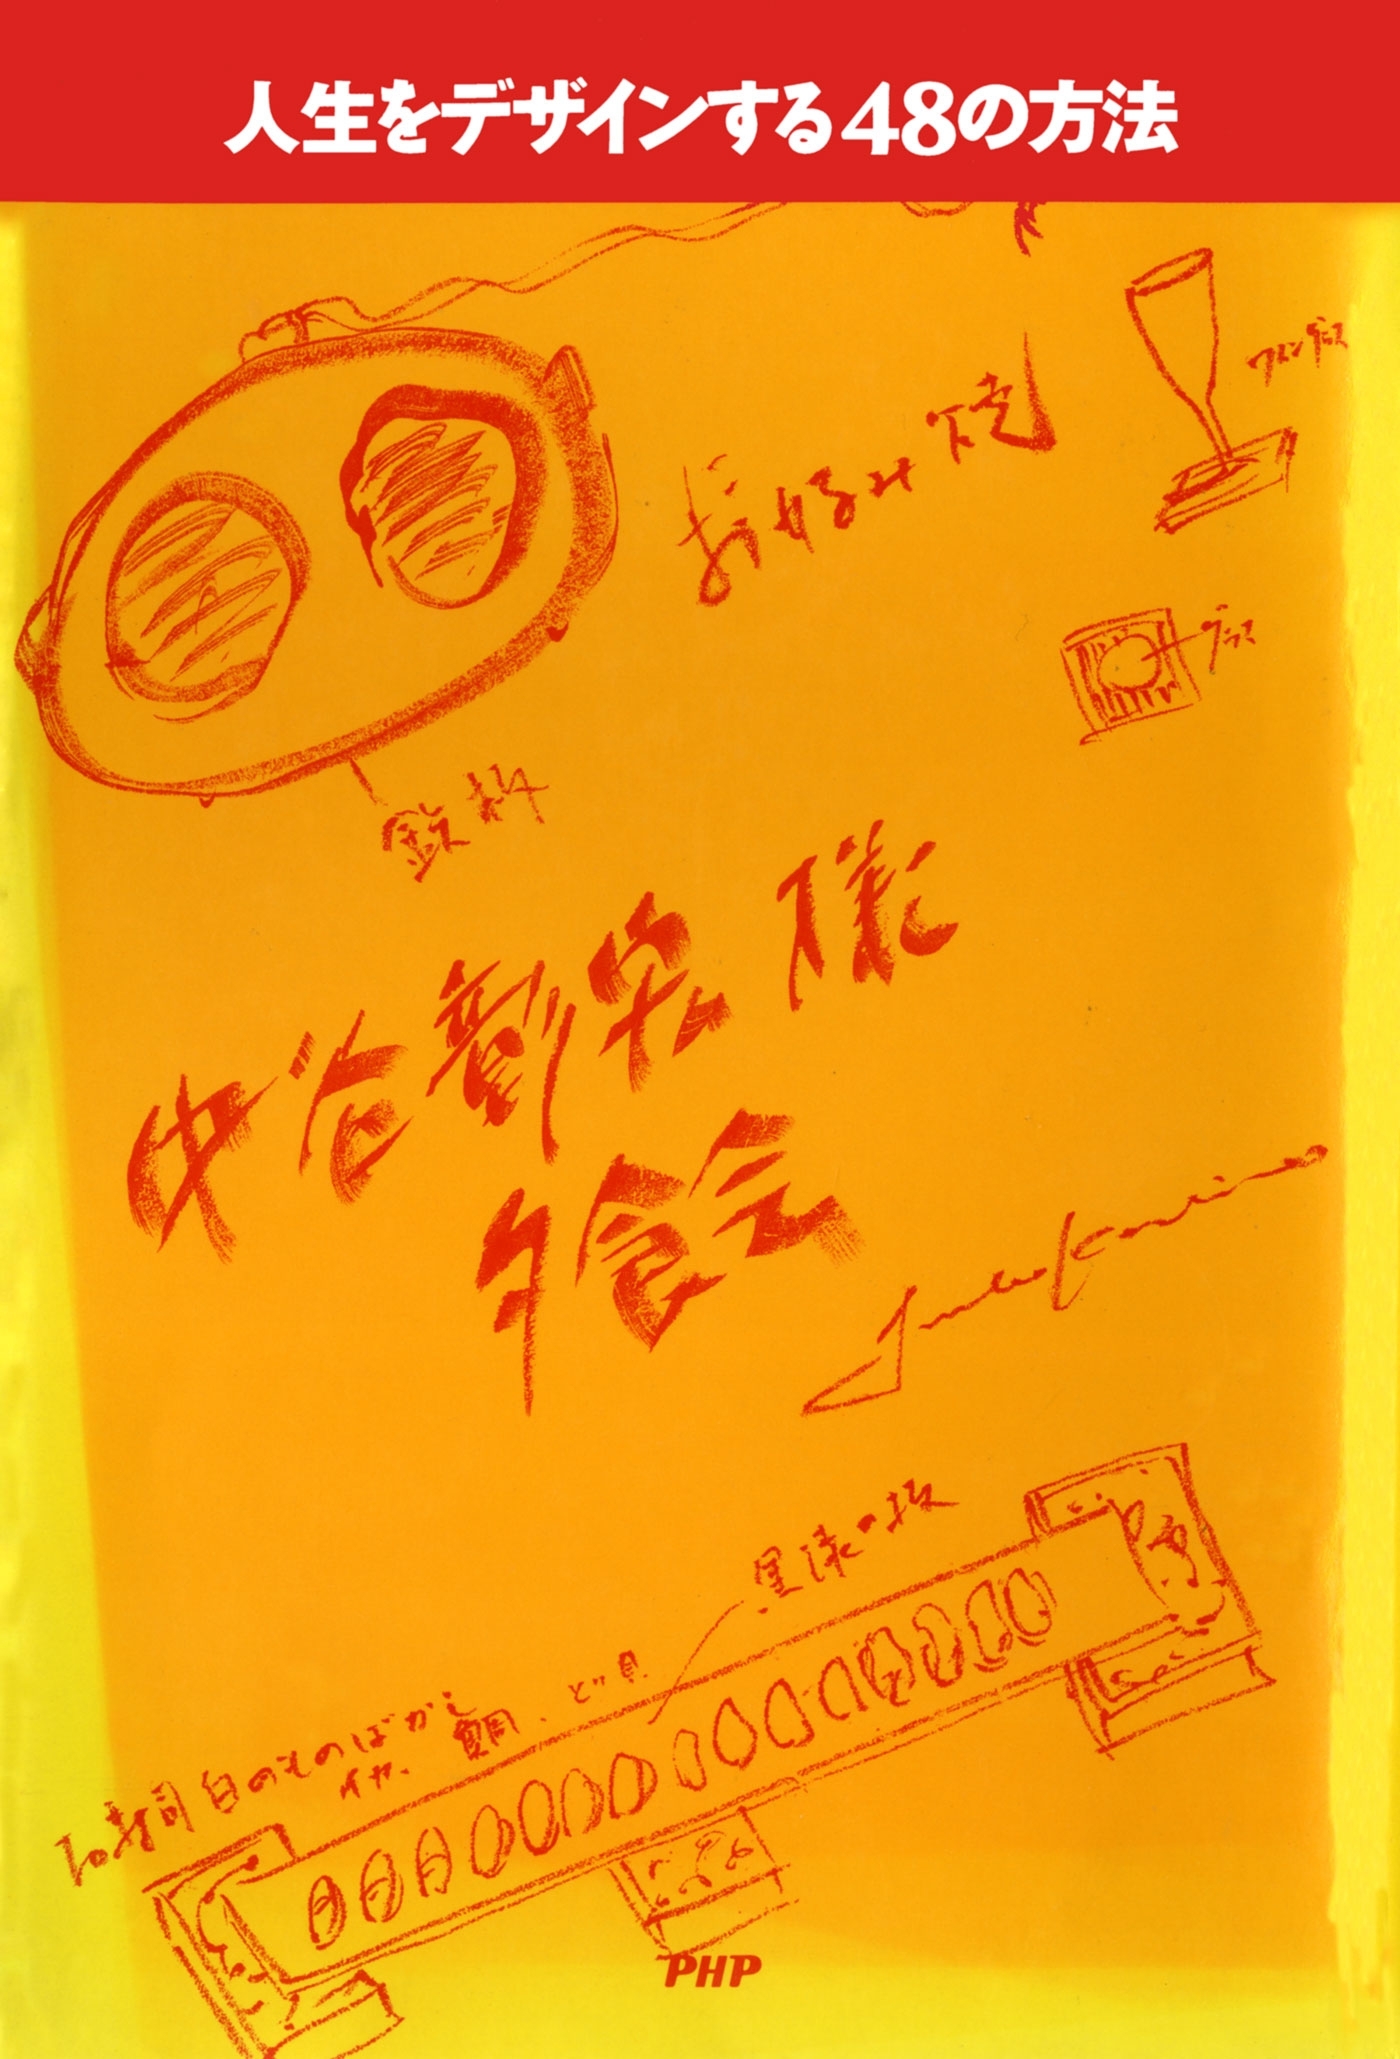 人生をデザインする48の方法
ワイングラス
お好み焼
グラス
鉄板
中谷彰宏様
夕食会
黒漆の板
寿司 白のものばかし
イカ、鯛、とり貝
PHP